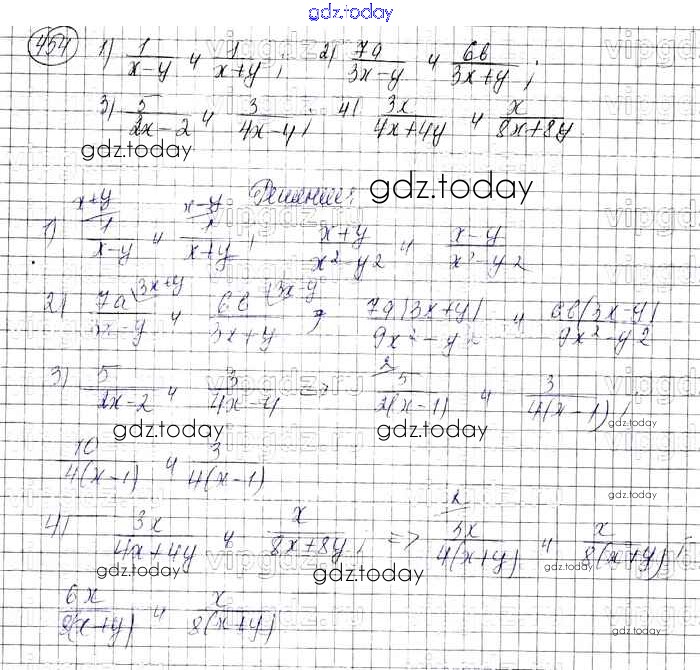 gdz.today
454 1) 1/(x-y) и 1/(x+y); 2) 7a/(3x-y) и 6в/(3x+y);
3) 5/(2x-2) и 3/(4x-4); 4) 3x/(4x+4y) и x/(8x+8y)
gdz.today
Решение: gdz.today
1) 1/(x-y) (x+y и 1/(x+y) (x-y; (x+y)/(x²-y²) и (x-y)/(x²-y²)
2) 7a/(3x-y) (3x+y и 6в/(3x+y) (3x-y; 7a(3x+y)/(9x²-y²) и 6в(3x-y)/(9x²-y²)
3) 5/(2x-2) и 3/(4x-4) ; 5/(2(x-1)) (2 и 3/(4(x-1));
gdz.today gdz.today gdz.today
10/(4(x-1)) и 3/(4(x-1))
gdz.today
4) 3x/(4x+4y) и x/(8x+8y); => 3x/(4(x+y)) (2 и x/(8(x+y));
gdz.today gdz.today gdz.today
6x/(8(x+y)) и x/(8(x+y))
gdz.today